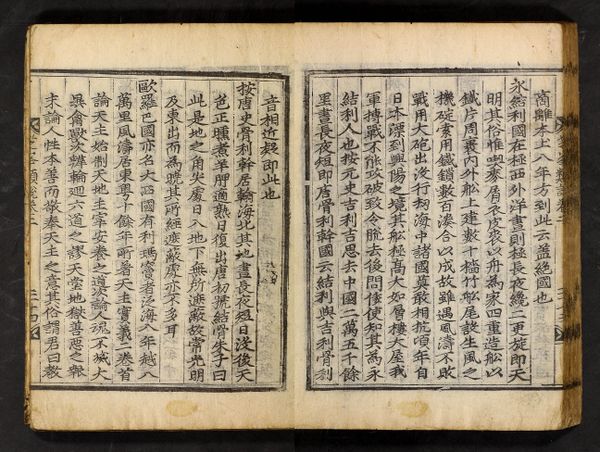 商離本土八年方到此云蓋絕國也
永結利國在極西外洋晝則極長夜纔二更旋即天
明其俗惟喫麥屑衣皮裘以舟為家四重造船以
鐵片周裹內外船上建數十檣竹船尾設生風之
機碇索用鐵鎖數百湊合以成故雖遇風濤不敗
戰用大砲出沒行刼海中諸國莫敢相抗頃年自
日本漂到興陽之境其船極高大如層樓大屋我
軍搏戰不能攻破致令脫去後問倭使知其為永
結利人也按元史吉利吉思去中國二萬五千餘
里晝長夜短即唐骨利幹國云結利與吉利骨利
音相近疑即此也
按唐史骨利幹居瀚海北其地晝長夜短日沒後天
色正曛煮羊胛適熟日復出唐初號結骨朱子曰
此是地之角尖處日入地下無所遮蔽故常光明
及東出而為曉其所經遮蔽處亦不多耳
歐羅巴國亦名大西國有利瑪竇者泛海八年越八
萬里風濤居東粵十餘年所著天主實義二卷首
論天主始制天地主宰安養之道次論人魂不滅大
異禽獸次辨輪廻六道之謬天堂地獄善惡之報
末論人性本善而敬奉天主之意其俗謂君曰教